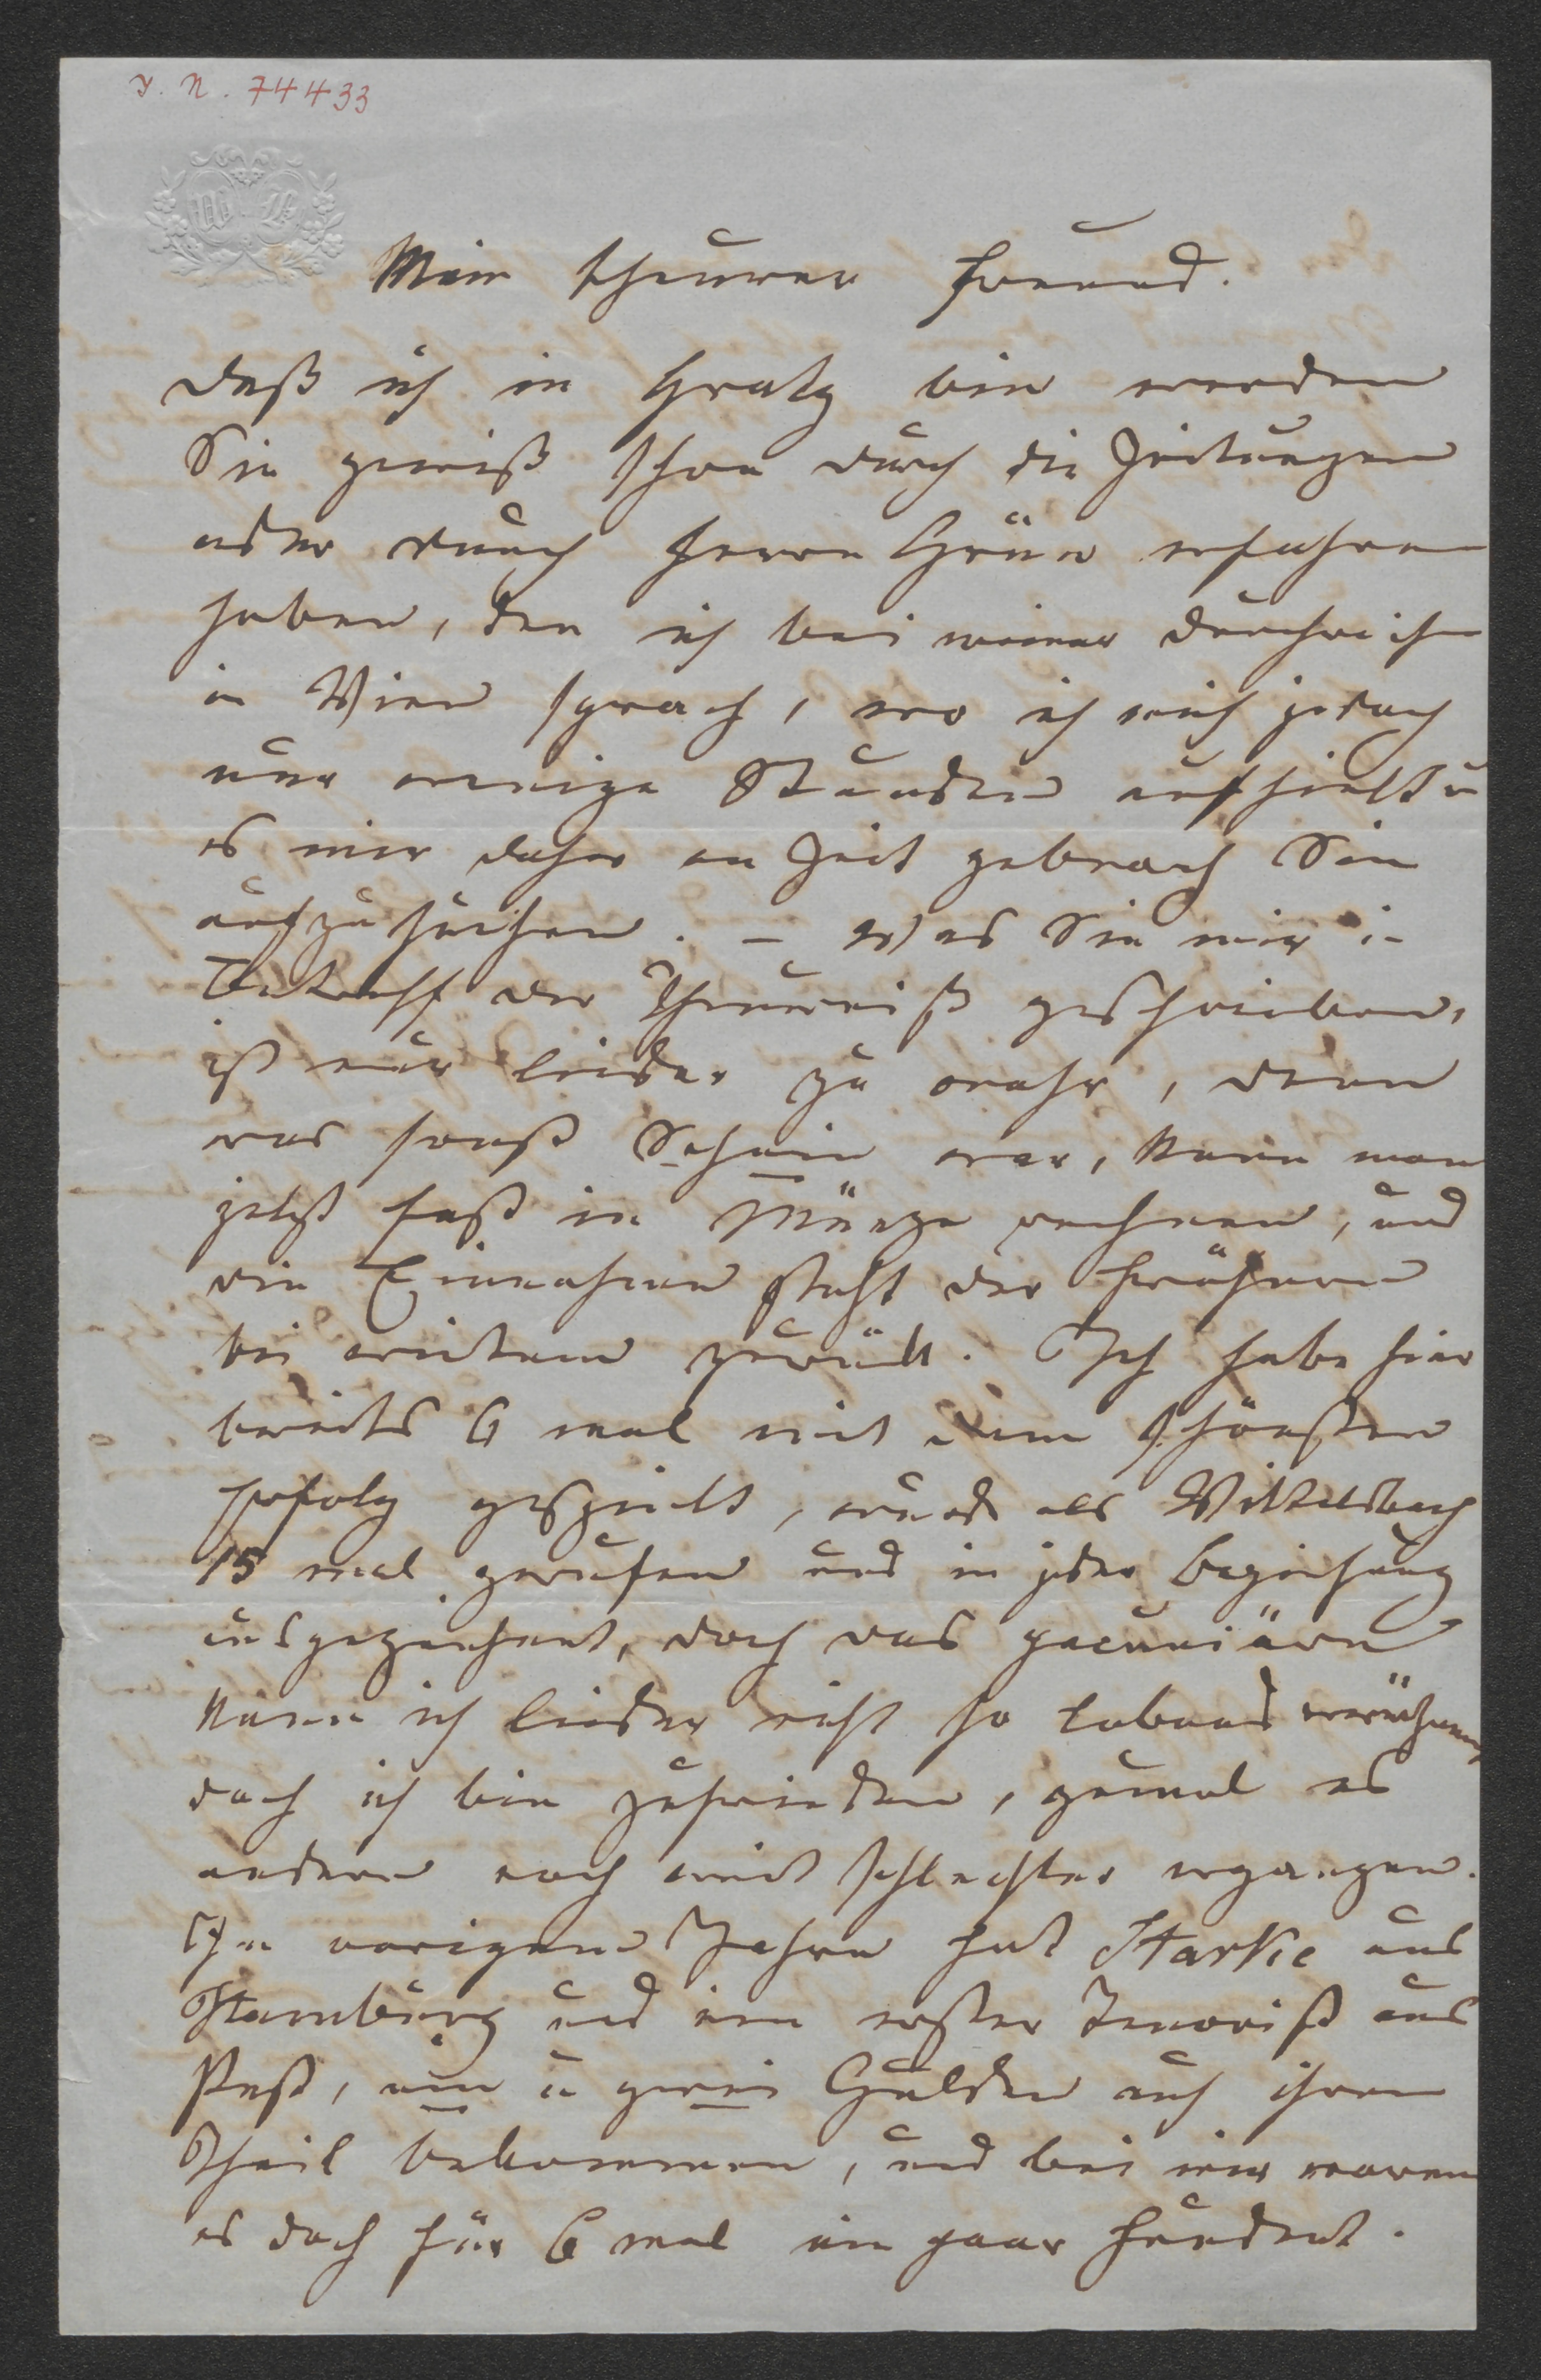 I. N. 74433
Mein theurer Freund.
Daß ich in Gratz bin werden
Sie gewiß schon durch die Zeitungen
oder durch Herrn Grün erfahren
haben, den ich bei meiner Durchreise
in Wien sprach, wo ich mich jedoch
nur wenige Stunden aufhielt u
es mir daher an Zeit gebrach Sie
aufzusuchen. – Was Sie mir in
Betreff der Theurniß geschrieben,
ist nur leider zu wahr, denn
was sonst Schein war, kann man
jetzt fast in Münze rechnen, und
die Einnahmen steht der frühern
bei weitem zurück. Ich habe hier
bereits 6 mal mit dem schönsten
Erfolg gespielt, wurde als Wittelsbach
15 mal gerufen und in jeder Beziehung
ausgezeichnet, doch das pecuniäre
kann ich leider nicht so lobend erwähnen,
doch ich bin zufrieden, zumal es
andern noch weit schlechter ergangen.
Im vorigen Jahre hat Starke aus
Hamburg und ein erster Tenorist aus
Pest, ein u zwei Gulden auf ihren
Theil bekommen, und bei mir waren
es doch für 6 mal ein paar hundert.